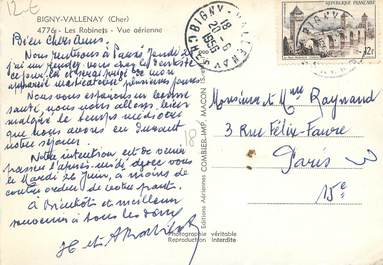 12-6
BIGNY-VALLENAY (Cher)
4776 - Les Robinets - Vue aérienne
Bien chers Amis.
Nous rentrons à Paris Jeudi
j'ai un rendez vous chez un dentiste
ce jour là et serai privé de mon
appareil masticateur
Nous vous espérons en bonne
santé, nous nous allons bien
malgré le temps médiocre
que nous avons eu durant
notre séjour.
Notre intention est de venir
passer l'après-midi avec vous
le Mardi 24 Juin, à moins de
contre ordre de votre part.
à Bientôt et meilleur
souvenir à tous les deux
Photographie véritable
Reproduction interdite
Editions Aériennes COMBIER IMP. MACON
BIGNY-VALLENAY
18 6
1958
CHER
REPUBLIQUE FRANÇAISE
12F
Monsieur et Mme Raynaud
3 Rue Félix-Faure
Paris
15e